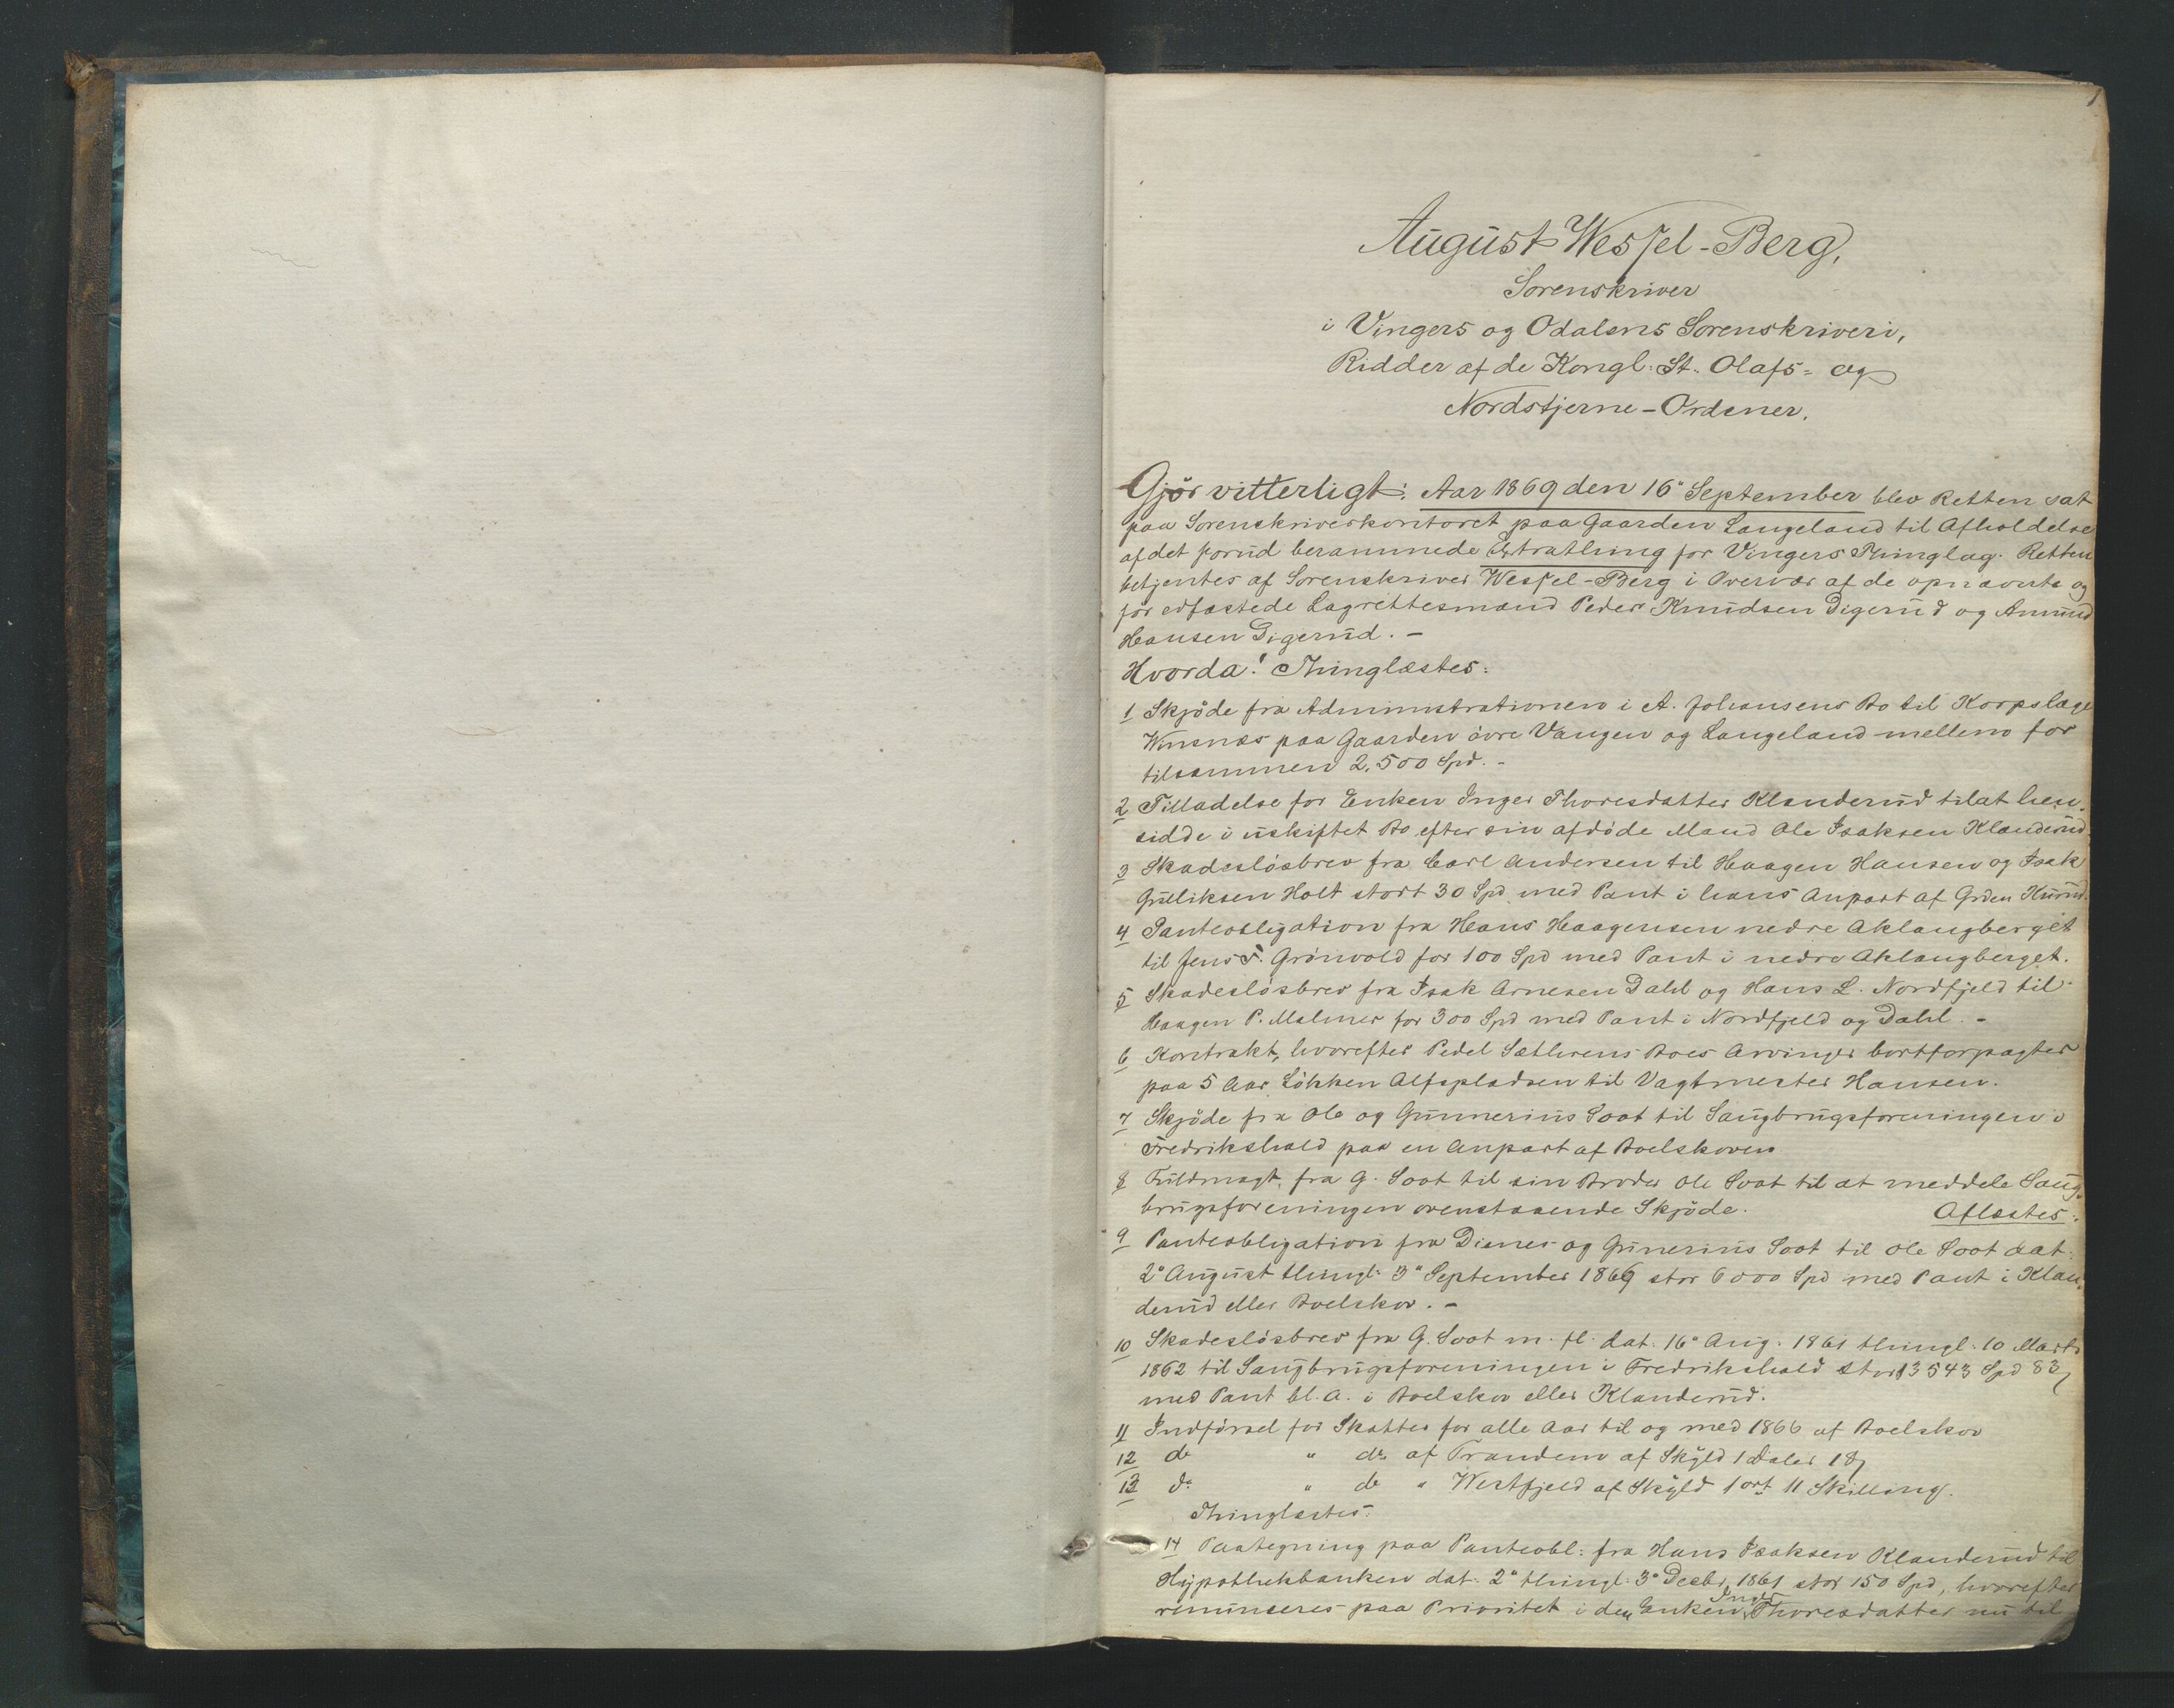 1
August Wessel-Berg,
Sorenskriver
i Vingers og Odalens Sorenskriveri,
Ridder af de Kongl: St. Olafs- og
Nordstjerne-Ordener.
Gjør vitterligt: Aar 1869 den 16° September blev Retten sat
paa Sorenskriverkontoret paa Gaarden Langeland til Afholdelse
af det forud berammede Extrathing for Vingers Thinglag. Retten
betjentes af Sorenskriver Wessel-Berg i Overvær af de opnævnte og
før edfæstede Lagrettesmænd Peder Knudsen Digerud og Amund
Hansen Gigerud. -
Hvorda! Thinglæstes:
1 Skjøde fra Administrationen i A. Johansens Bo til Korpslæge
Winsnæs paa Gaarden øvre Vangen og Langeland mellem for
tilsammen 2,500 Spd. -
2 Tilladelse for Enken Inger Thoresdatter Klanderud til at hen-
sidde i uskiftet Bo efter sin afdøde Mand Ole Isaksen Klanderud.
3 Skadesløsbrev fra Carl Andersen til Haagen Hansen og Isak
Gulliksen Holt stort 30 Spd med Pant i hans Anpart af Grden Kurud.
4 Panteobligation fra Hans Haagensen nedre Aklangberget
til Jens F. Grønvold for 100 Spd med Pant i nedre Aklangberget.
5 Skadesløsbrev fra Isak Arnesen Dahl og Hans L. Nordfjeld til
Haagen P. Malmer for 300 Spd med Pant i Nordfjeld og Dahl. -
6 Kontrakt, hvorefter Pedel Sæthrens Boes Arvinger bortforpagter
paa 5 Aar Løkken Alfspladsen til Vagtmester Hansen.
7 Skjøde fra Ole og Gunnerius Soot til Saugbrugsforeningen i
Fredrikshald paa en Anpart af Boelskoven
8 Fuldmagt fra G. Soot til sin Broder Ole Soot til at meddele Saug-
brugsforeningen ovenstaaende Skjøde. Aflæstes:
9 Panteobligation fra Dines og Gunerius Soot til Ole Soot dat:
2° August thingl: 3° September 1869 stor 6000 Spd med Pant i Klan-
derud eller Boelskov. -
10 Skadesløsbrev fra G. Soot m. fl. dat. 16° Aug. 1861 thingl. 10 Marts
1862 til Saugbrugsforeningen i Fredrikshald stor 13543 Spd 83
med Pant bl. A. i Boelskov eller Klanderud.
11 Indførsel for Skatter for alle Aar til og med 1866 af Boelskov
12 do " do af Trandem af Skyld 1 Daler 18
13 do " do " Westfjeld af Skyld 1 ort 11 Skilling.
Thinglæstes:
14 Paategning paa Panteobl: fra Hans Isaksen Klanderud til
Hypothekbanken dat: 2° thingl: 3° Decbr 1861 stor 150 Spd, hvorefter
renunseres paa Prioritet i den Enken Inger Thoresdatter nu til